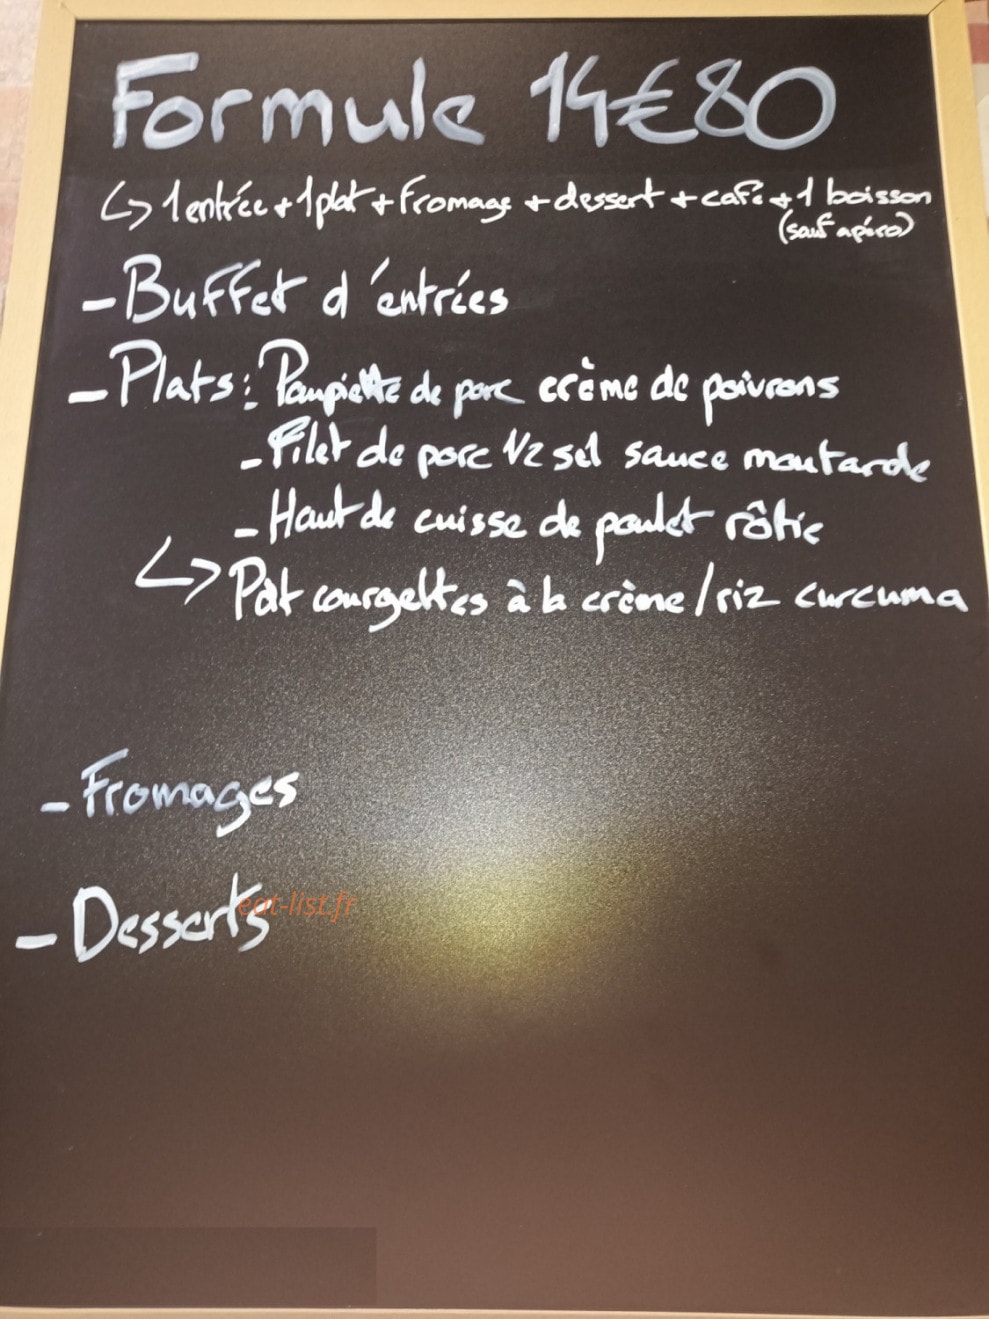 Formule 14€80
↳ 1 entrée + 1 plat + fromage + dessert + café + 1 boisson
(sauf apéro)
- Buffet d'entrées
- Plats : Paupiette de porc crème de poivrons
- Filet de porc 1/2 sel sauce moutarde
- Haut de cuisse de poulet rôtie
↳ Pât courgettes à la crème / riz curcuma
- Fromages
- Desserts
eat-list.fr